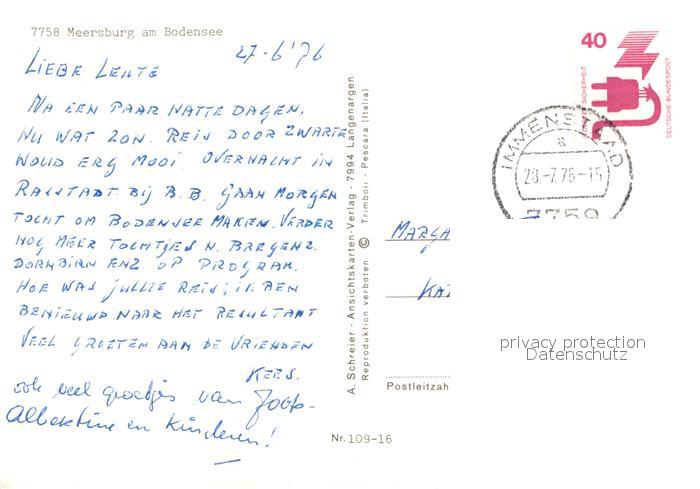 7758 Meersburg am Bodensee
27-6'76
LIEBE LEUTE
NA EEN PAAR NATTE DAGEN,
NU WAT ZON. REIS DOOR ZWARTE
WOUD ERG MOOI OVERNACHT IN
RASSTADT BIJ B.B. GAAN MORGEN
TOCHT OM BODENSEE MAKEN. VERDER
NOG MEER TOCHTJES N. BREGENZ.
DORNBIRN ENZ OP PROGRAM.
HOE WAS JULLIE REIS; IK BEN
BENIEUWD NAAR HET RESULTAAT
VEEL GROETEN AAN DE VRIENDEN
KEES.
ook veel groetjes van Joop-
Albertine en kinderen!
A. Schreier - Ansichtskarten-Verlag - 7994 Langenargen
Reproduktion verboten © Trimboli - Pescara (Italia)
Nr. 109-16
40
SICHERHEIT
DEUTSCHE BUNDESPOST
IMMENSTAAD
a
28.-7.76-15
7759
MARGA
KA
Postleitzah
privacy protection
Datenschutz